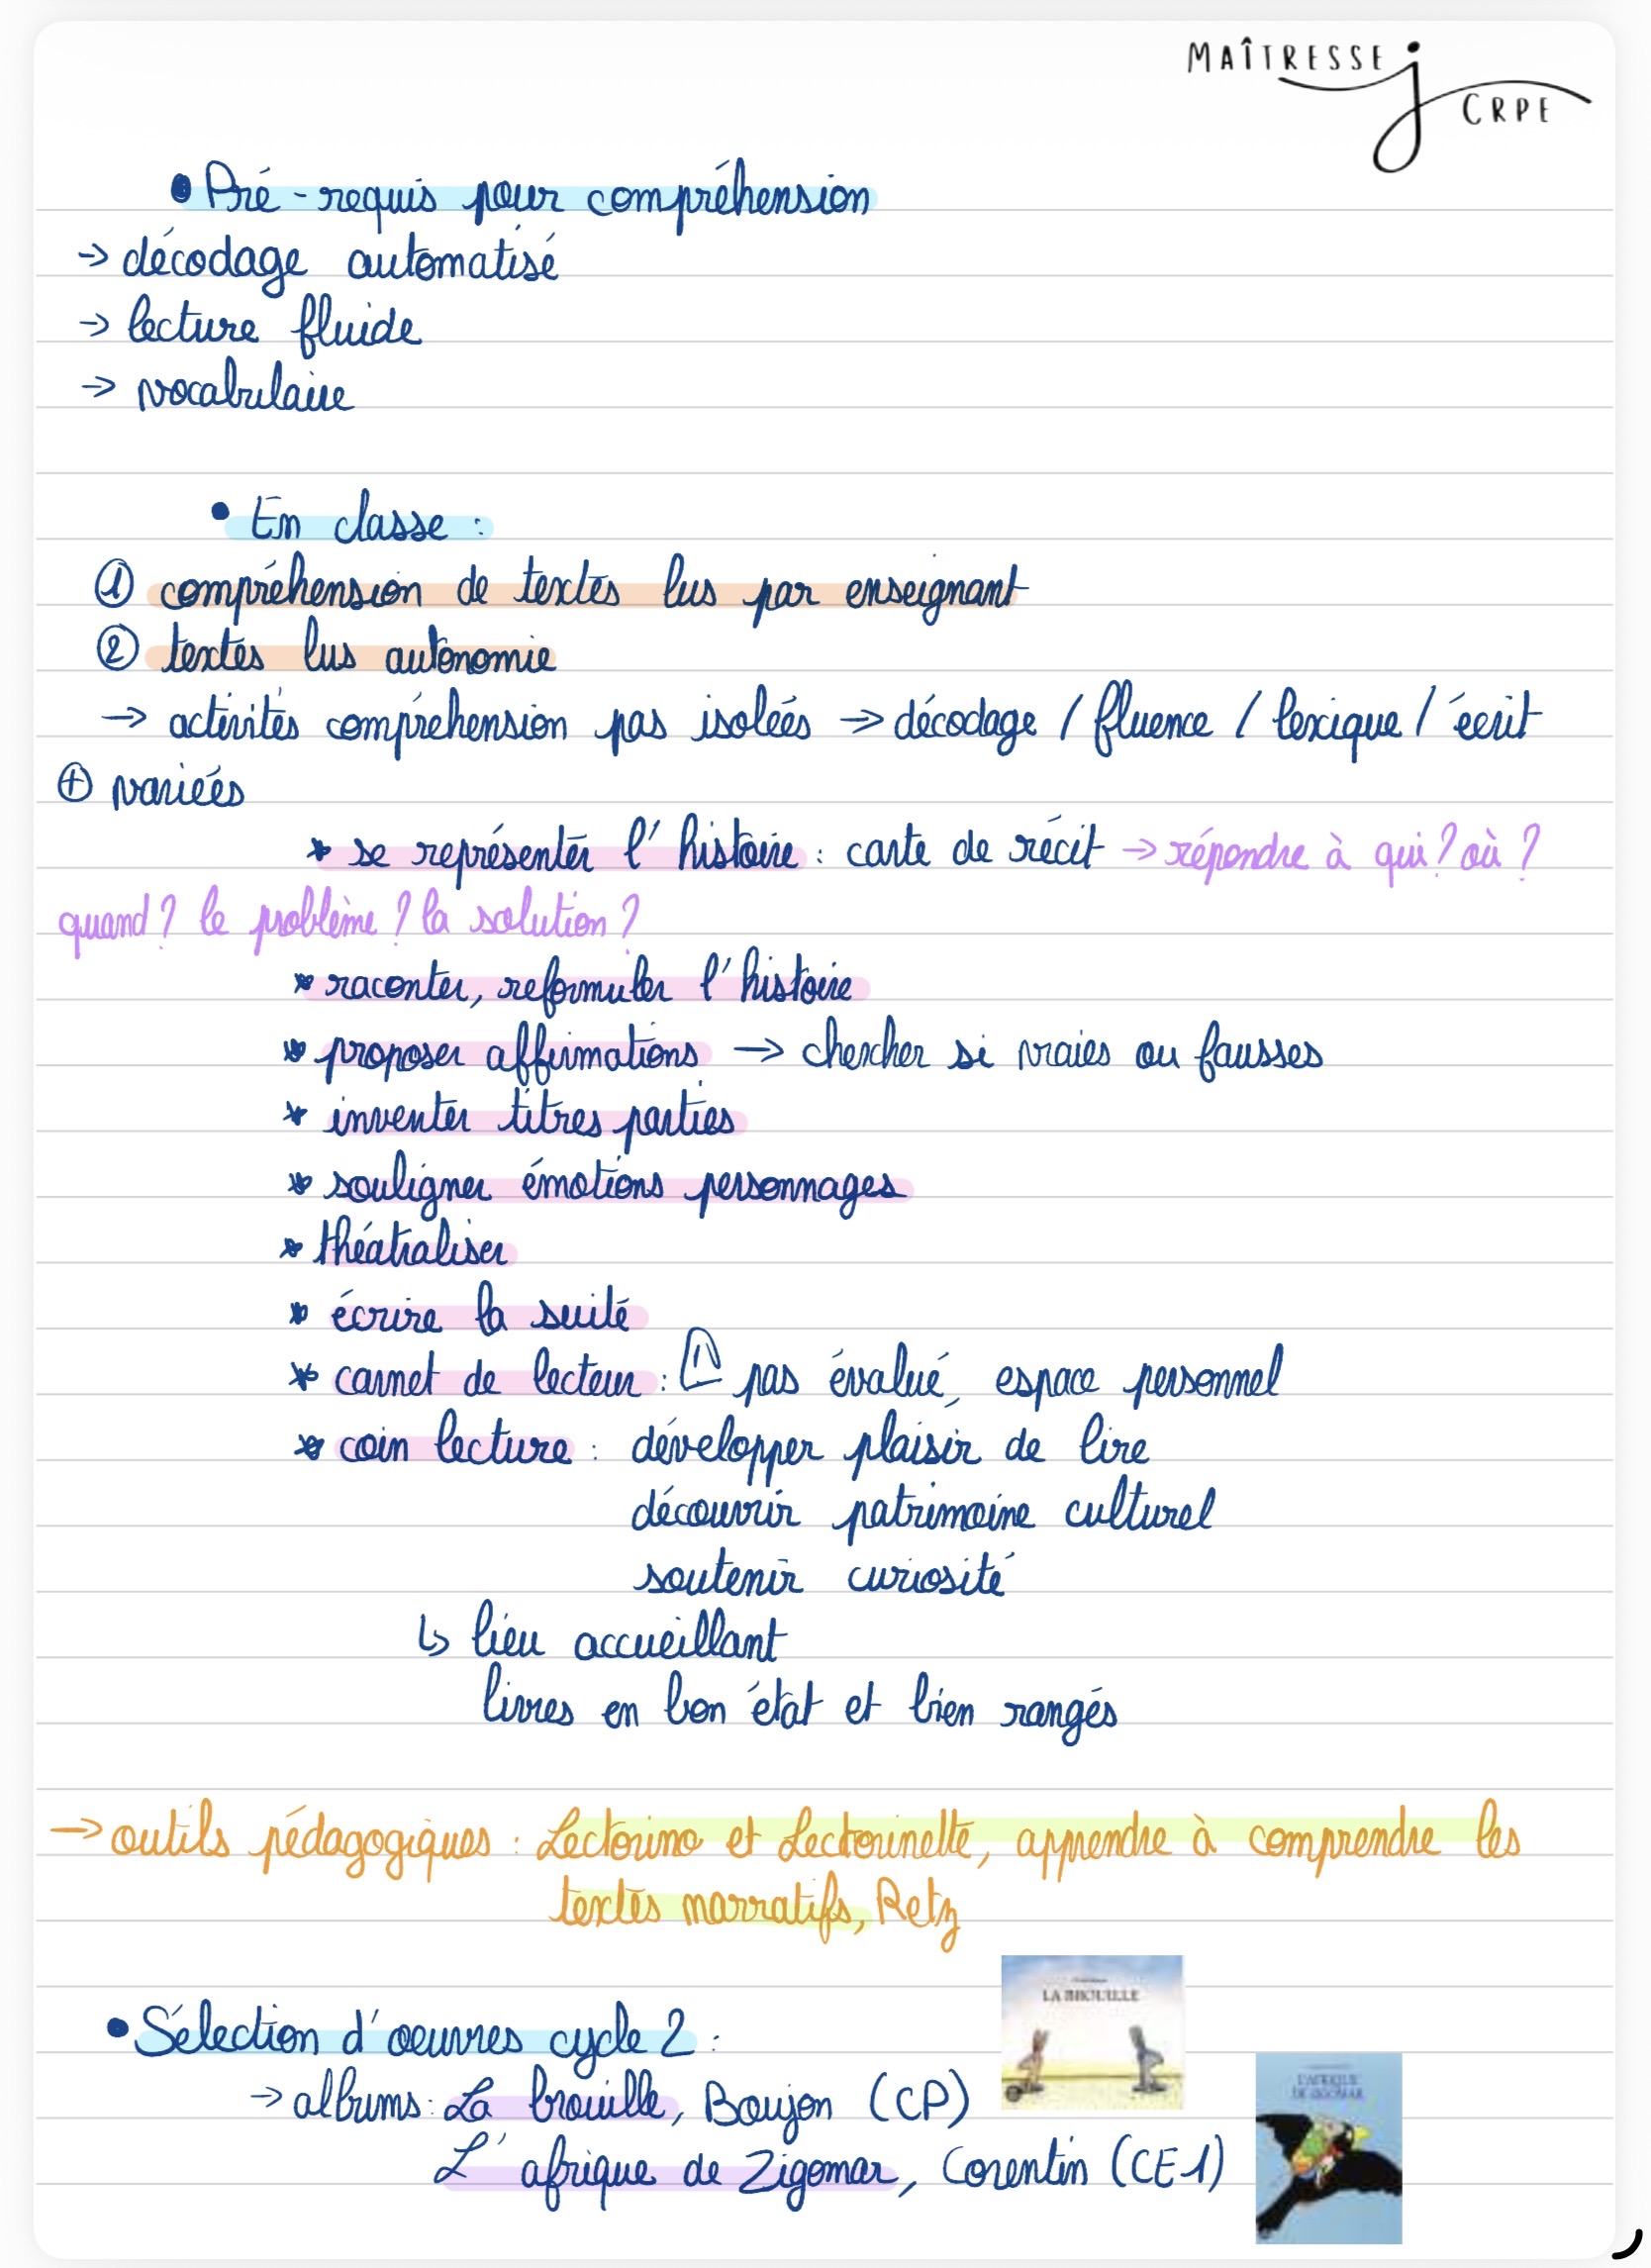 MAÎTRESSE J CRPE
• Pré-requis pour compréhension
→ décodage automatisé
→ lecture fluide
→ vocabulaire
• En classe :
① compréhension de textes lus par enseignant
② textes lus autonomie
→ activités compréhension pas isolées → décodage / fluence / lexique / écrit
⊕ variées
* se représenter l'histoire : carte de récit → répondre à qui ? où ?
quand ? le problème ? la solution ?
* raconter, reformuler l'histoire
* proposer affirmations → chercher si vraies ou fausses
* inventer titres parties
* souligner émotions personnages
* théatraliser
* écrire la suite
* carnet de lecteur : ⚠ pas évalué, espace personnel
* coin lecture : développer plaisir de lire
découvrir patrimoine culturel
soutenir curiosité
↳ lieu accueillant
livres en bon état et bien rangés
→ outils pédagogiques : Lectorino et Lectorinette, apprendre à comprendre les
textes narratifs, Retz
LA BROUILLE
• Sélection d'oeuvres cycle 2 :
L'AFRIQUE
DE ZIGOMAR
→ albums : La brouille, Boujon (CP)
L'afrique de Zigomar, Corentin (CE1)